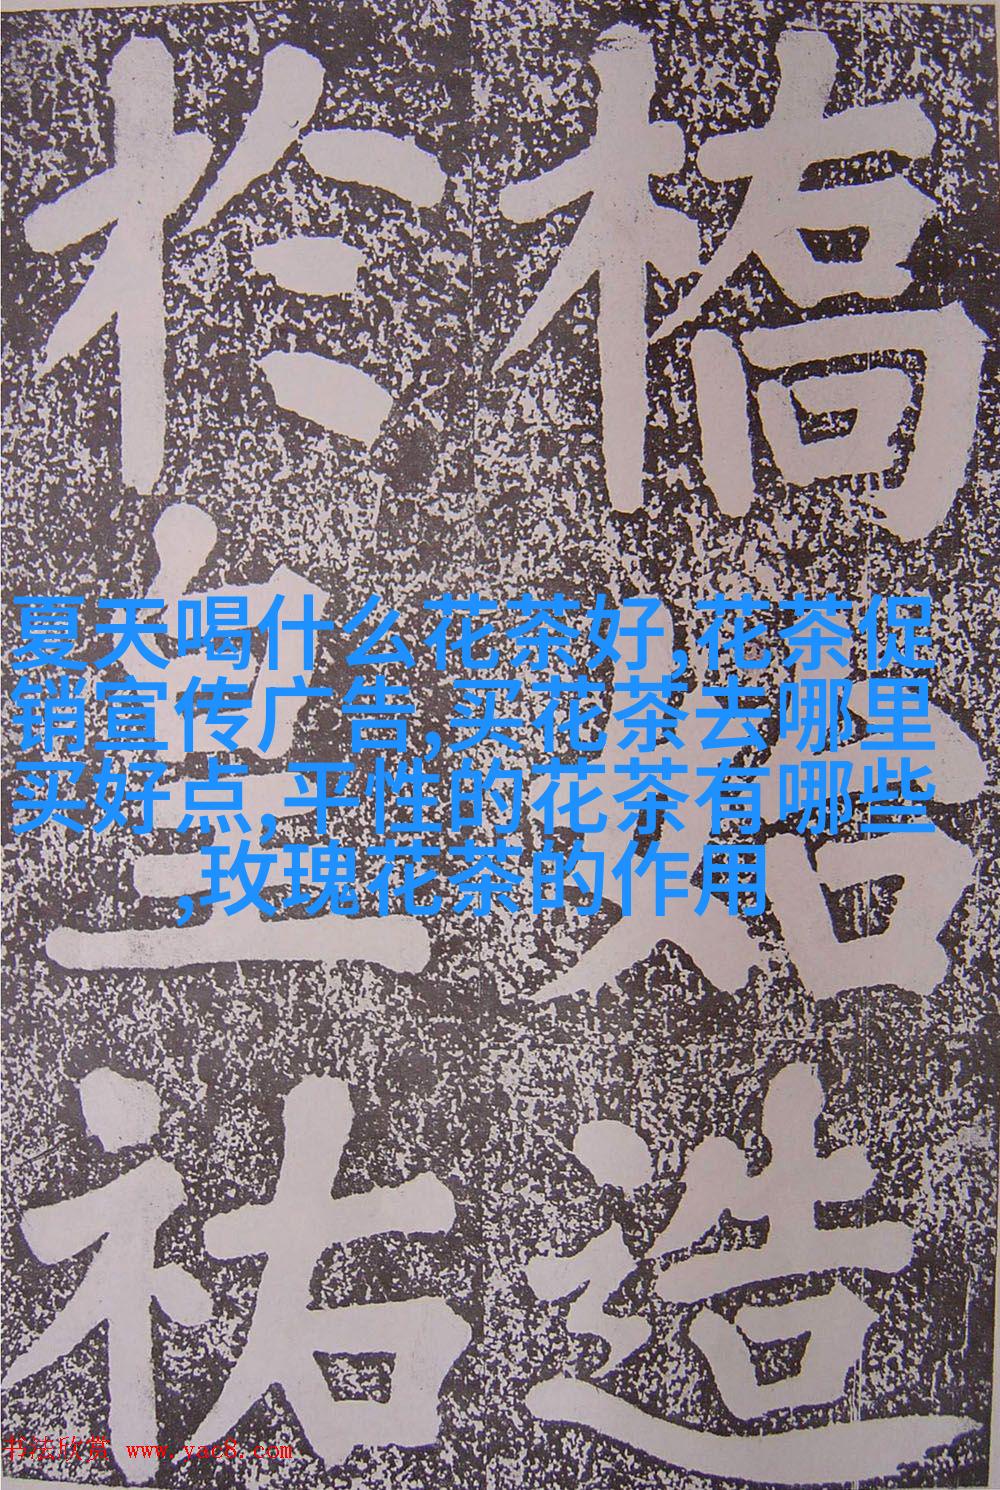 橋始造
於皇祐
夏天喝什么花茶好,花茶促
销宣传广告,买花茶去哪里
买好点,平性的花茶有哪些
,玫瑰花茶的作用
书法欣赏 www.yac8.com